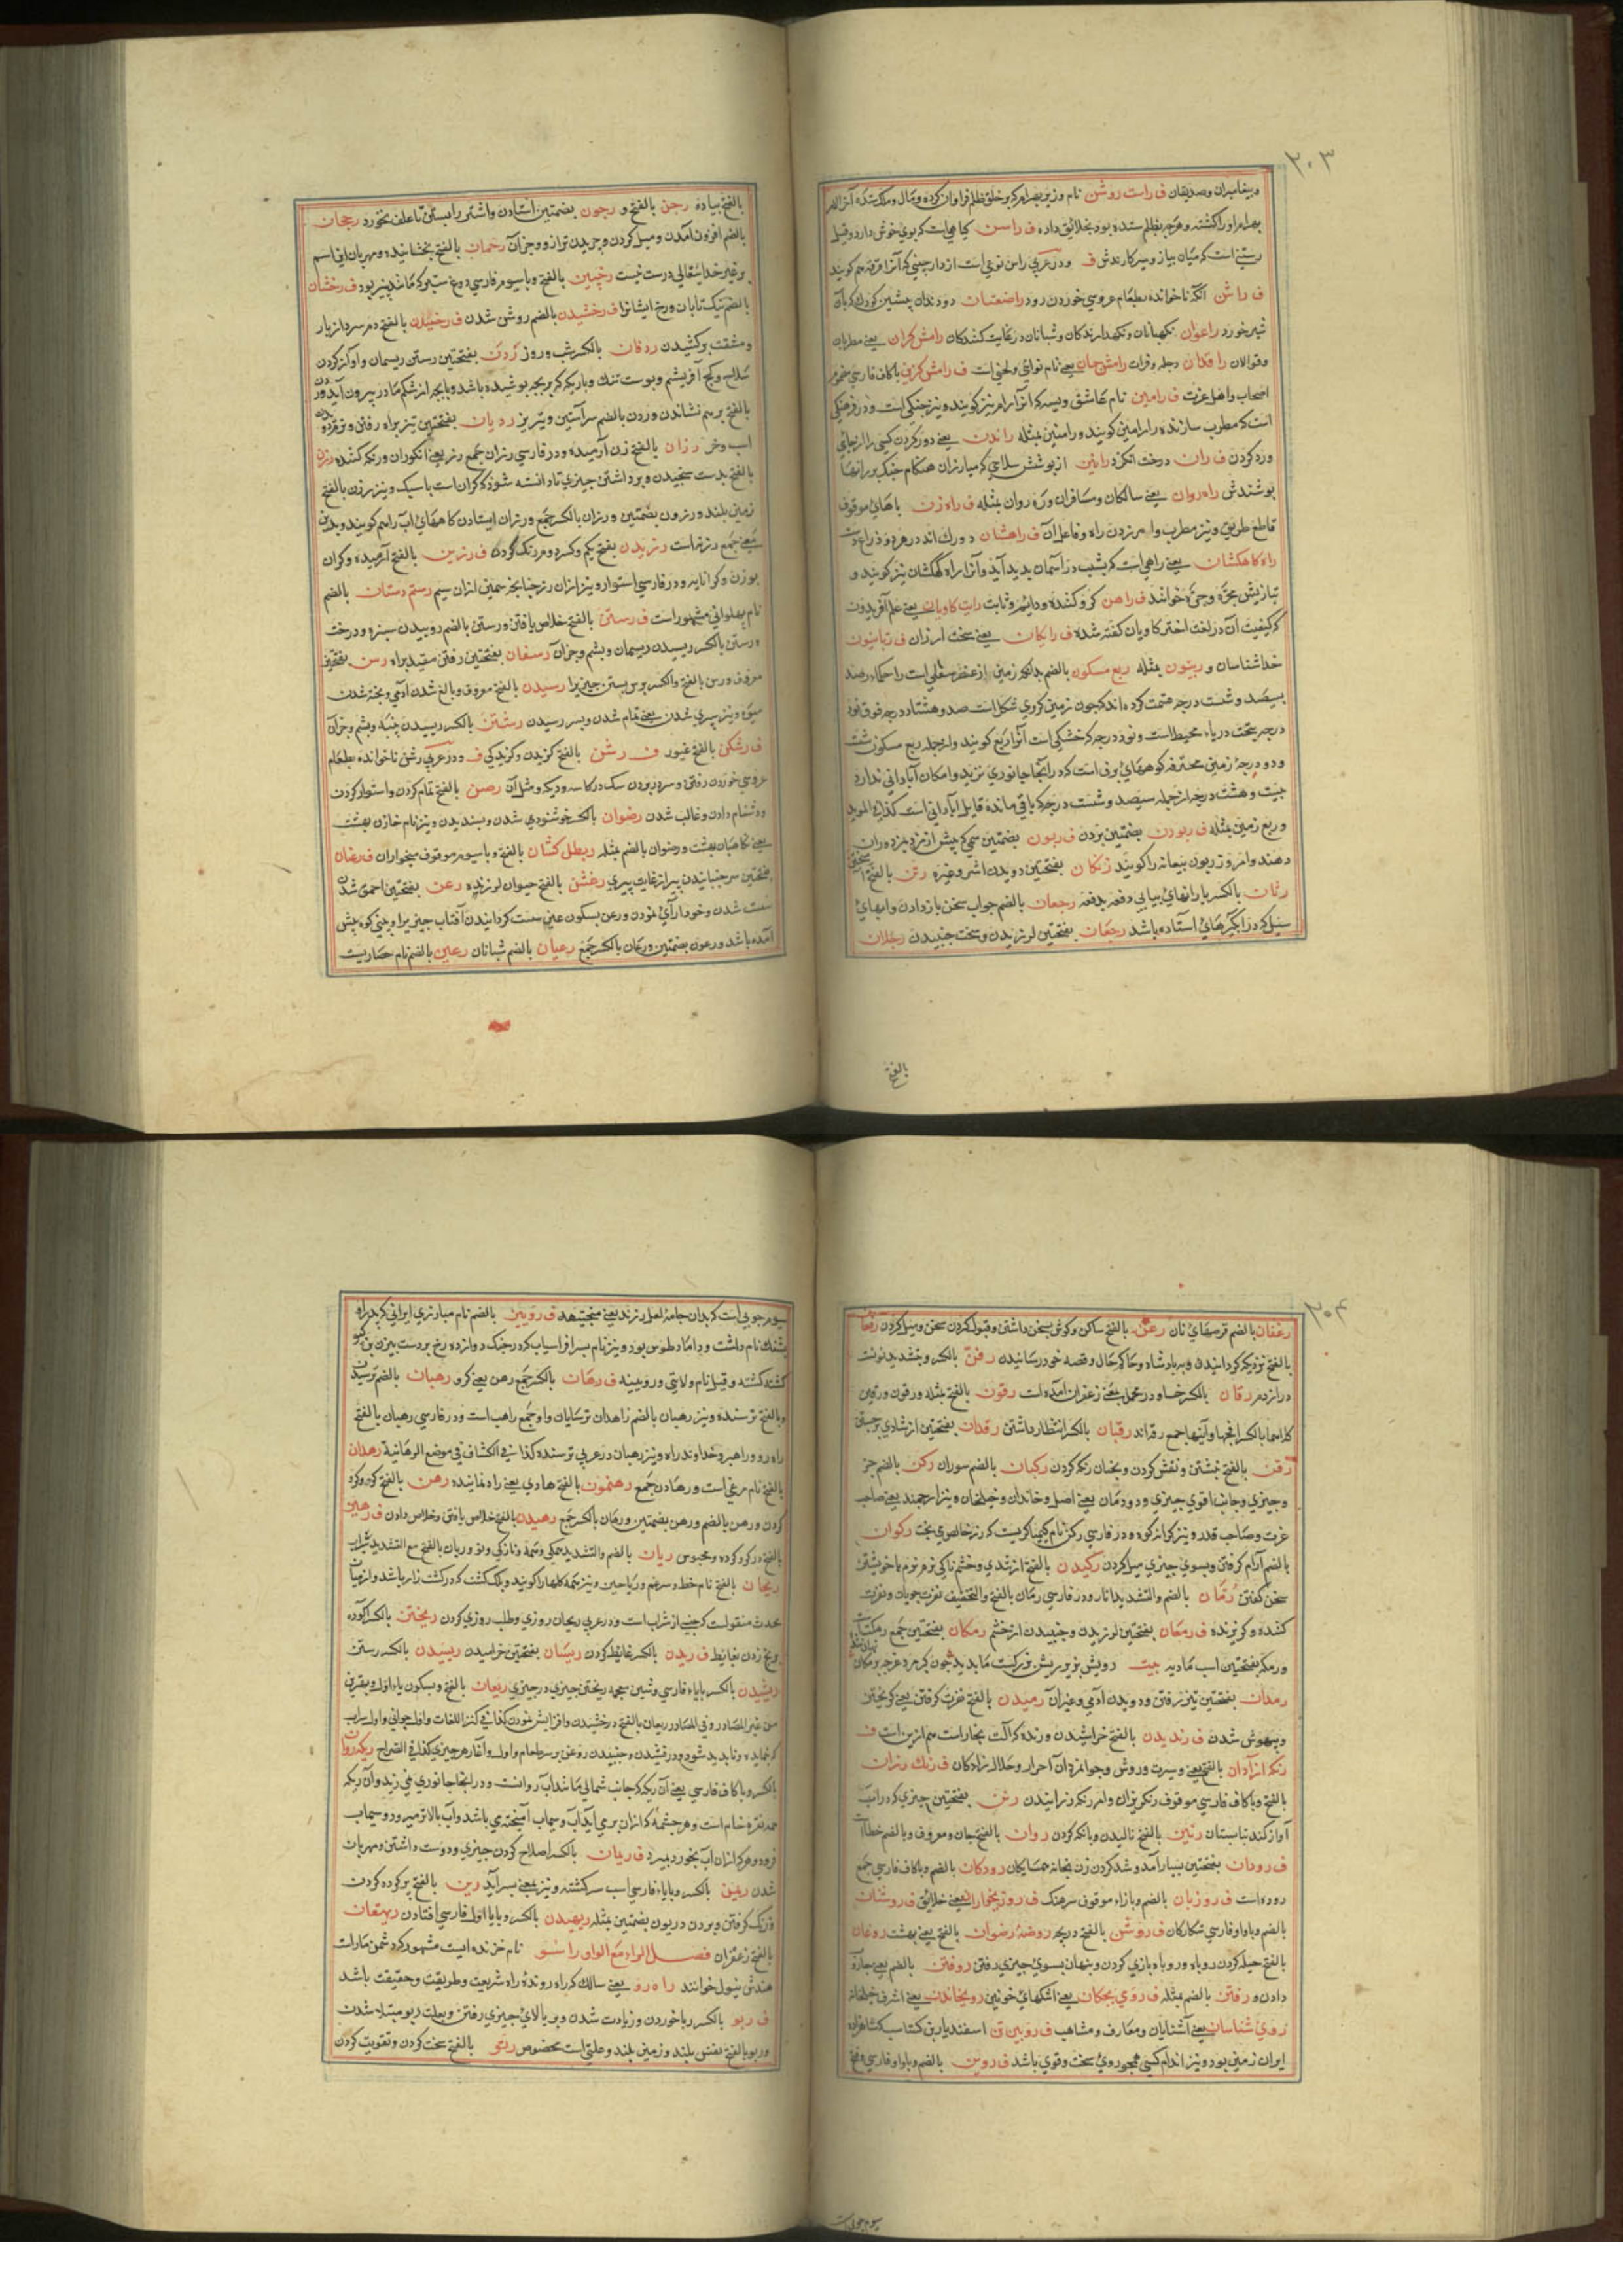 ۲۰۳
و پیغامبران و صدیقان ف راست روشن نام وزیر بهرام که بر خلق ظلم فراوان کرده و مال و ملک
بهرام او را کشته و هرچه بظلم ستده بود بخلائق داده ف راسن گیاهی است که بوی خوش دارد و قیل
رستنی است که میان پیاز و سیر کارندش ف و در عربی راسن نوعی است از دارچینی که آنرا قرفه هم گویند
ف راشن آنکه ناخوانده بطعام عروسی خوردن رود راضعان دو دندان پیشین کودک که بآن
شیر خورد راعوان نگهبانان و نگهدارندگان و شبانان و رعایت کنندگان رامش گران یعنے مطربان
و قوالان رافدان دجله و فرات رامش جان یعنے نام نوائی و لحنی است ف رامش کزین با کاف فارسی
اصحاب و اهل عزت ف رامین نام عاشق ویسه که آنرا رام نیز گویند و نیز چنگی است و در فرهنگی
است که مطرب سازنده را رامین گویند و رامتین مثله راندن یعنے دور کردن کسی را از جای
و رد کردن ف ران درخت انگزد رانین از پوشش سلاحی که مبارزان هنگام جنگ بر رانها
پوشندش راه روان یعنے سالکان و مسافران و ره روان مثله ف راه زن با های موقوف
قاطع طریق و نیز مطرب و امر زدن راه و فاعل آن ف راهشان دو رک اند در هر دو ذراع
راه کاهکشان یعنے راهی است که بشب در آسمان پدید آید و آنرا راه کهکشان نیز گویند و
بتازیش مجره خوانند ف راهن گرو کننده و دائم و ثابت رایت کاویان یعنے علم آفریدون
که کیفیت آن در لغت اختر کاویان گفته شده ف رایکان یعنے سخت ارزان ف ربانیون
خداشناسان و ربیون مثله ربع مسکون بالضم بدانکه زمین از عنصر سفلی است را حکماء رصد
بسیصد و شست درجه قسمت کرده اند که چون زمین کروی شکل است صد و هشتاد درجه فوق
درجه تحت دریاء محیط است و نود درجه که خشکی است آنرا ربع گویند و از جمله ربع مسکون شست
و دو درجه زمین محترقه کوههای برفی است که در آنجا جانوری نزید و امکان آبادانی ندارد
بیست و هشت درجه از جمله سیصد و شست درجه که باقی مانده قابل آبادانی است کذا فی الموید
و ربع زمین مثله ف ربودن بضمتین بردن ف ربون بضمتین سیمی که پیش از مزد بمزدوران
دهند و امروز ربون بیعانه را گویند رتکان بفتحتین دویدن اشتر و غیره رتن بالفتح
رثان بالکسر بارانهای پیاپی دفعه بدفعه رجعان بالضم جواب سخن باز دادن و آبهای
سیل که در آبگیرهای استاده باشد رجفان بفتحتین لرزیدن و سخت جنبیدن رجلان
بالفتح
بالفتح پیاده رجن بالفتح و رجون بضمتین استادن و اشتر را بستن تا علف نخورد رجحان
بالضم افزون آمدن و میل کردن و چربیدن ترازو و جز آن رحمان بالفتح بخشاینده و مهربان این اسم
بر غیر خدایتعالی درست نیست رخبین بالفتح و با سیوم فارسی دوغ ستبر که مانند پنیر بود ف رخشان
بالضم نیک تابان و رخ ایشانرا ف رخشیدن بالضم روشن شدن ف رخیدن بالفتح دم سرد از بار
و مشقت برکشیدن ردفان بالکسر شب و روز ردن بفتحتین رستن ریسمان و آواز کردن
سلاح و کج آفریشم و پوست تنک و باریک که بر بچه پوشیده باشد و با بچه از شکم مادر بیرون آید
بالفتح بر هم نشاندن و ردن بالضم سر آستین و تیریز ردیان بفتحتین تیز براه رفتن
اسب و خر رزان بالفتح زن آرمیده و در فارسی رزان جمع رز یعنے انگوران و رنگ کننده رزن
بالفتح بدست سنجیدن و برداشتن چیزی تا دانسته شود که گران است یا سبک و نیز رزن بالفتح
زمین بلند و رزون بضمتین و رزان بالکسر جمع و رزان ایستادن گاههای آب را هم گویند و بدین
معنے جمع رزنه است رزیدن بفتح یکم و کسر دوم رنگ کردن ف رزین بالفتح آرمیده و گران
بوزن و گرانمایه و در فارسی استوار و نیز از آن رز چنانچه سیمین از آن سیم رستم دستان بالضم
نام پهلوانی مشهور است ف رستن بالفتح خلاص یافتن و رستن بالضم روییدن سبزه و درخت
و رستن بالکسر ریسیدن ریسمان و پشم و جز آن رسفان بفتحتین رفتن مقید براه رسن بفتحتین
معروف و رسن بالفتح والکسر برسن بستن چیزی را رسیدن بالفتح معروف و بالغ شدن آدمی و پخته شدن
میوه و نیز سپری شدن یعنے تمام شدن و بسر رسیدن رشتن بالکسر ریسیدن پنبه و پشم و جز آن
ف رشکن بالفتح غیور ف رشن بالفتح گزیدن و گزیدگی ف و در عربی رشن ناخوانده بطعام
عروسی خوردن رفتن و سر در بردن سگ در کاسه و دیگ و مثل آن رصن بالفتح تمام کردن و استوار کردن
و دشنام دادن و غالب شدن رضوان بالکسر خوشنودی شدن و پسندیدن و نیز نام خازن بهشت
یعنے نگاهبان بهشت و رضوان بالضم مثله رطل کشان بالفتح و با سیوم موقوف میخواران ف رعان
بفتحتین سر جنبانیدن پیر از غایت پیری رعشن بالفتح حیوان لرزنده رعن بفتحتین احمق شدن
سست شدن و خودآرائی نمودن و رعن بسکون عین سست گردانیدن آفتاب چیزی را و بینی کوه که پیش
آمده باشد و رعون بضمتین و رعان بالکسر جمع رعیان بالضم شبانان رعین بالضم نام حصاریست
۲۰۴
رغفان بالضم قرصهای نان رغن بالفتح ساکن و گوش بسخن داشتن و قبول کردن سخن و میل کردن رفعان
بالفتح نزدیک گردانیدن و به پادشاه و حاکم حال و قصه خود رسانیدن رفن بالکسر و بتشدید نون اسپ
دراز دم رقان بالکسر حنا و در محمل بمعنے زعفران آمده است رقون بالفتح مثله و رقون و رقین
رقبان بالکسر انتظار داشتن رقدان بفتحتین از شادی برجستن
رقن بالفتح نبشتن و نقش کردن و بحنا رنگ کردن رکبان بالضم سواران رکن بالضم جز
و چیزی و جانب اقوی چیزی و دودمان یعنے اصل و خاندان و خیلخان و نیز ارجمند یعنے صاحب
عزت و صاحب قدر و نیز کرانه کوه و در فارسی رکن نام کیمیاگریست که زر خالص می پخت رکوان
بالضم آرام گرفتن و بسوی چیزی میل کردن رکیدن بالفتح از تندی و خشمناکی نرم نرم با خویشتن
سخن گفتن رمان بالضم والتشدید انار و در فارسی رمان بالفتح والتخفیف نفرت جویان و نفرت
کننده و گریزنده ف رمعان بفتحتین لرزیدن و جنبیدن از خشم رمکان بفتحتین جمع رمکات
و رمکه بفتحتین اسب مادیه بیت
رملان بفتحتین تیز رفتن و دویدن آدمی و غیر آن رمیدن بالفتح نفرت گرفتن یعنے گریختن
و بیهوش شدن ف رندیدن بالفتح خراشیدن و رنده که آلت نجار است هم ازین است ف
رنگ آزادان بالفتح یعنے سیرت و روش و جوانمردان احرار و حلال زادگان ف رنگ رزان
بالفتح و با کاف فارسی موقوف رنگریزان و امر رنگ رزانیدن رنن بفتحتین چیزی که در آب
آواز کند تابستان رنین بالفتح نالیدن و بانگ کردن روان بالفتح جان و معروف و بالضم خطاست
ف رودان بفتحتین بسیار آمد و شد کردن زن بخانه همسایگان رودگان بالضم و با کاف فارسی جمع
روده است ف روزبان بالضم و با زاء موقوف سرهنگ ف روزیخواران یعنے خلایق ف روشنان
بالضم و با واو فارسی ستارگان ف روشن بالفتح دریچه روضه رضوان بالفتح یعنے بهشت روغان
بالفتح حیله کردن روباه و روباه بازی کردن و پنهان بسوی چیزی رفتن روفتن بالضم یعنے جاروب
دادن و رفتن بالضم مثله ف روی بچگان یعنے اشکهای خونین رویخاندن یعنے اشرف خیلخانه
روی شناسان یعنے آشنایان و معارف و مشاهیر ف رویین تن اسفندیار بن گشتاسب شاهزاده
ایران زمین بود و نیز اندام کسی که همچو روی سخت و قوی باشد ف روین بالضم و با واو فارسی و فتح
سیوم چوبی است
سیوم چوبی است که بدان جامه لعل رزند یعنے مجیتهه ف رویین بالضم نام مبارزی ایرانی که پدر او
پشنگ نام داشت و داماد طوس بود و نیز نام پسر افراسیاب که در جنگ دوازده رخ بر دست بیژن بن گیو
کشته گشته و قیل نام ولایتی و رویینه ف رهان بالکسر جمع رهن یعنے گرو رهبان بالضم ترسیدن
و بالفتح ترسنده و نیز رهبان بالضم زاهدان ترسایان و او جمع راهب است و در فارسی رهبان بالفتح
راه رو و راهبر و خداوند راه و نیز رهبان در عربی ترسنده کذا فی الکشاف فی موضع الرهبانیة رهدن
بالفتح نام مرغی است و رهادن جمع رهنمون بالفتح هادی یعنے راه نماینده رهن بالفتح گرو و گرو
کردن و رهن بالضم و رهن بضمتین و رهان بالکسر جمع رهیدن بالفتح خلاص یافتن و خلاص دادن ف رهین
بالفتح در گرو کرده و محبوس ریان بالضم والتشدید همگی و همه و نازکی و نو و ریان بالفتح مع التشدید سیراب
ریحان بالفتح نام خط و سپرغم و ریاحین و نیز همه گلها را گویند و بلک کشت که در کشت زار باشد و از میان
محدث منقولست که جنسے از شراب است و در عربی ریحان روزی و طلب روزی کردن ریختن بالکسر آگوده
و پخ زدن بغایط ف ریدن بالکسر غایط کردن ریسان بفتحتین خرامیدن ریسیدن بالکسر رستن
ریشیدن بالکسر با یاء فارسی و شین معجمه ریختن چیزی در چیزی ریعان بالفتح و بسکون یا اول و بهترین
من غیر المصادر و فی المصادر ریعان بالفتح درخشیدن و افزایش نمودن کذا فی کنز اللغات و اول جوانی و اول سراب
که نماید و ناپدید شود و درفشیدن و جنبیدن روغن بر سر طعام و اول و آغاز هر چیزی کذا فی الصراح ریگ روان
بالکسر و با کاف فارسی یعنے آن ریگ که جانب شمالی ماننداب روانست و در آنجا جانوری نمی زید و آن ریگ
همه نقره خام است و هر چشمه که از آن برمی آید آب و سیماب آمیخته می باشد و آب بالاتر میرود و سیماب
فرود و هر که از آن آب بخورد بمیرد ف ریمان بالکسر اصلاح کردن چیزی و دوست داشتن و مهربان
شدن ریمن بالکسر و با یاء فارسی اسب سرگشته و نیز بمعنے بسرآید رین بالفتح پر گرده کردن
و زنگ گرفتن و بردن و ریون بضمتین مثله ریهیدن بالکسر و با یا اول فارسی افتادن ریهقان
بالفتح زعفران فصل الراء مع الواو راسو نام خزنده ایست مشهور که دشمن مار است
هندش نیول خوانند راه رو یعنے سالک که راه رونده راه شریعت و طریقت و حقیقت باشد
ف ربو بالکسر ربا خوردن و زیادت شدن و بر بالای چیزی رفتن و بعلت ربو مبتلا شدن
و ربو بالفتح نفس بلند و زمین بلند و علتی است مخصوص رتو بالفتح سخت کردن و تقویت کردن